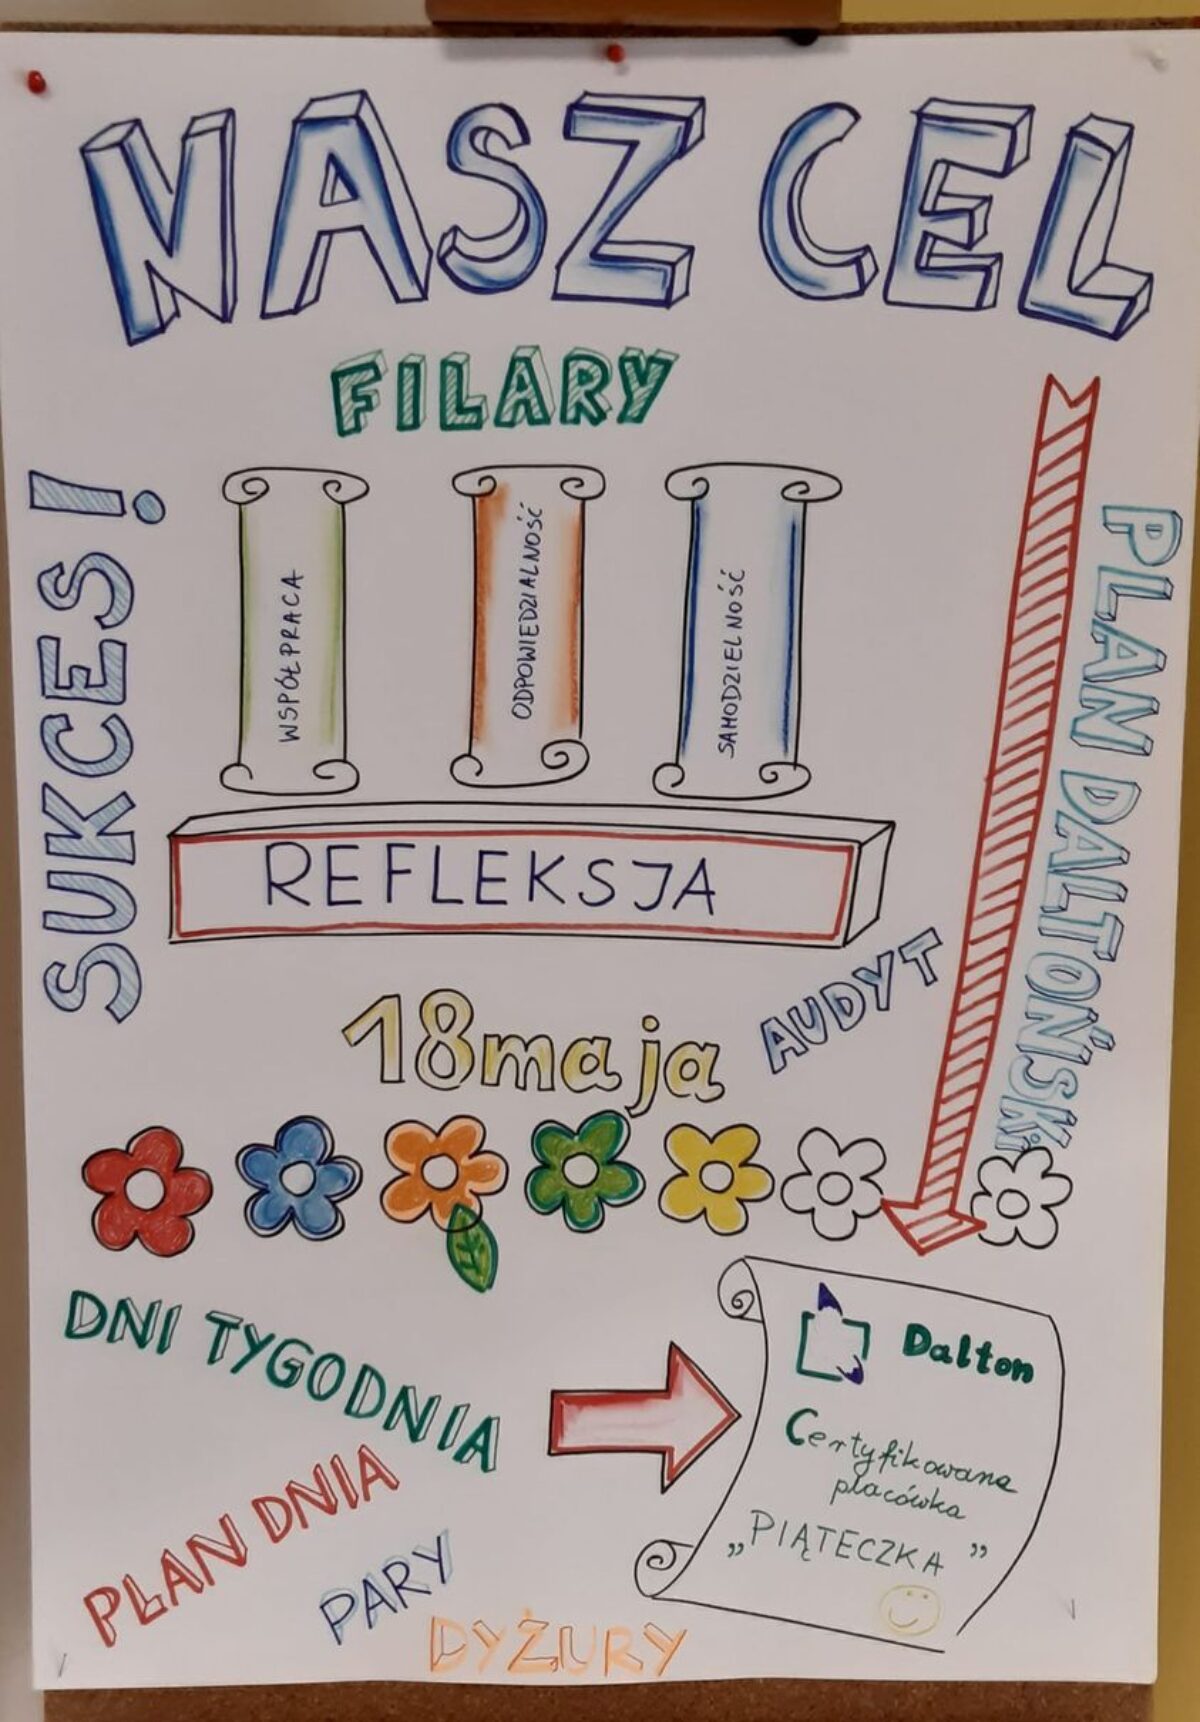 NASZ CEL
FILARY
SUKCES!
WSPÓŁPRACA
ODPOWIEDZIALNOŚĆ
SAMODZIELNOŚĆ
PLAN DALTOŃSKI
REFLEKSJA
AUDYT
18 maja
DNI TYGODNIA
PLAN DNIA
PARY
DYŻURY
Dalton
Certyfikowana
placówka
„PIĄTECZKA”